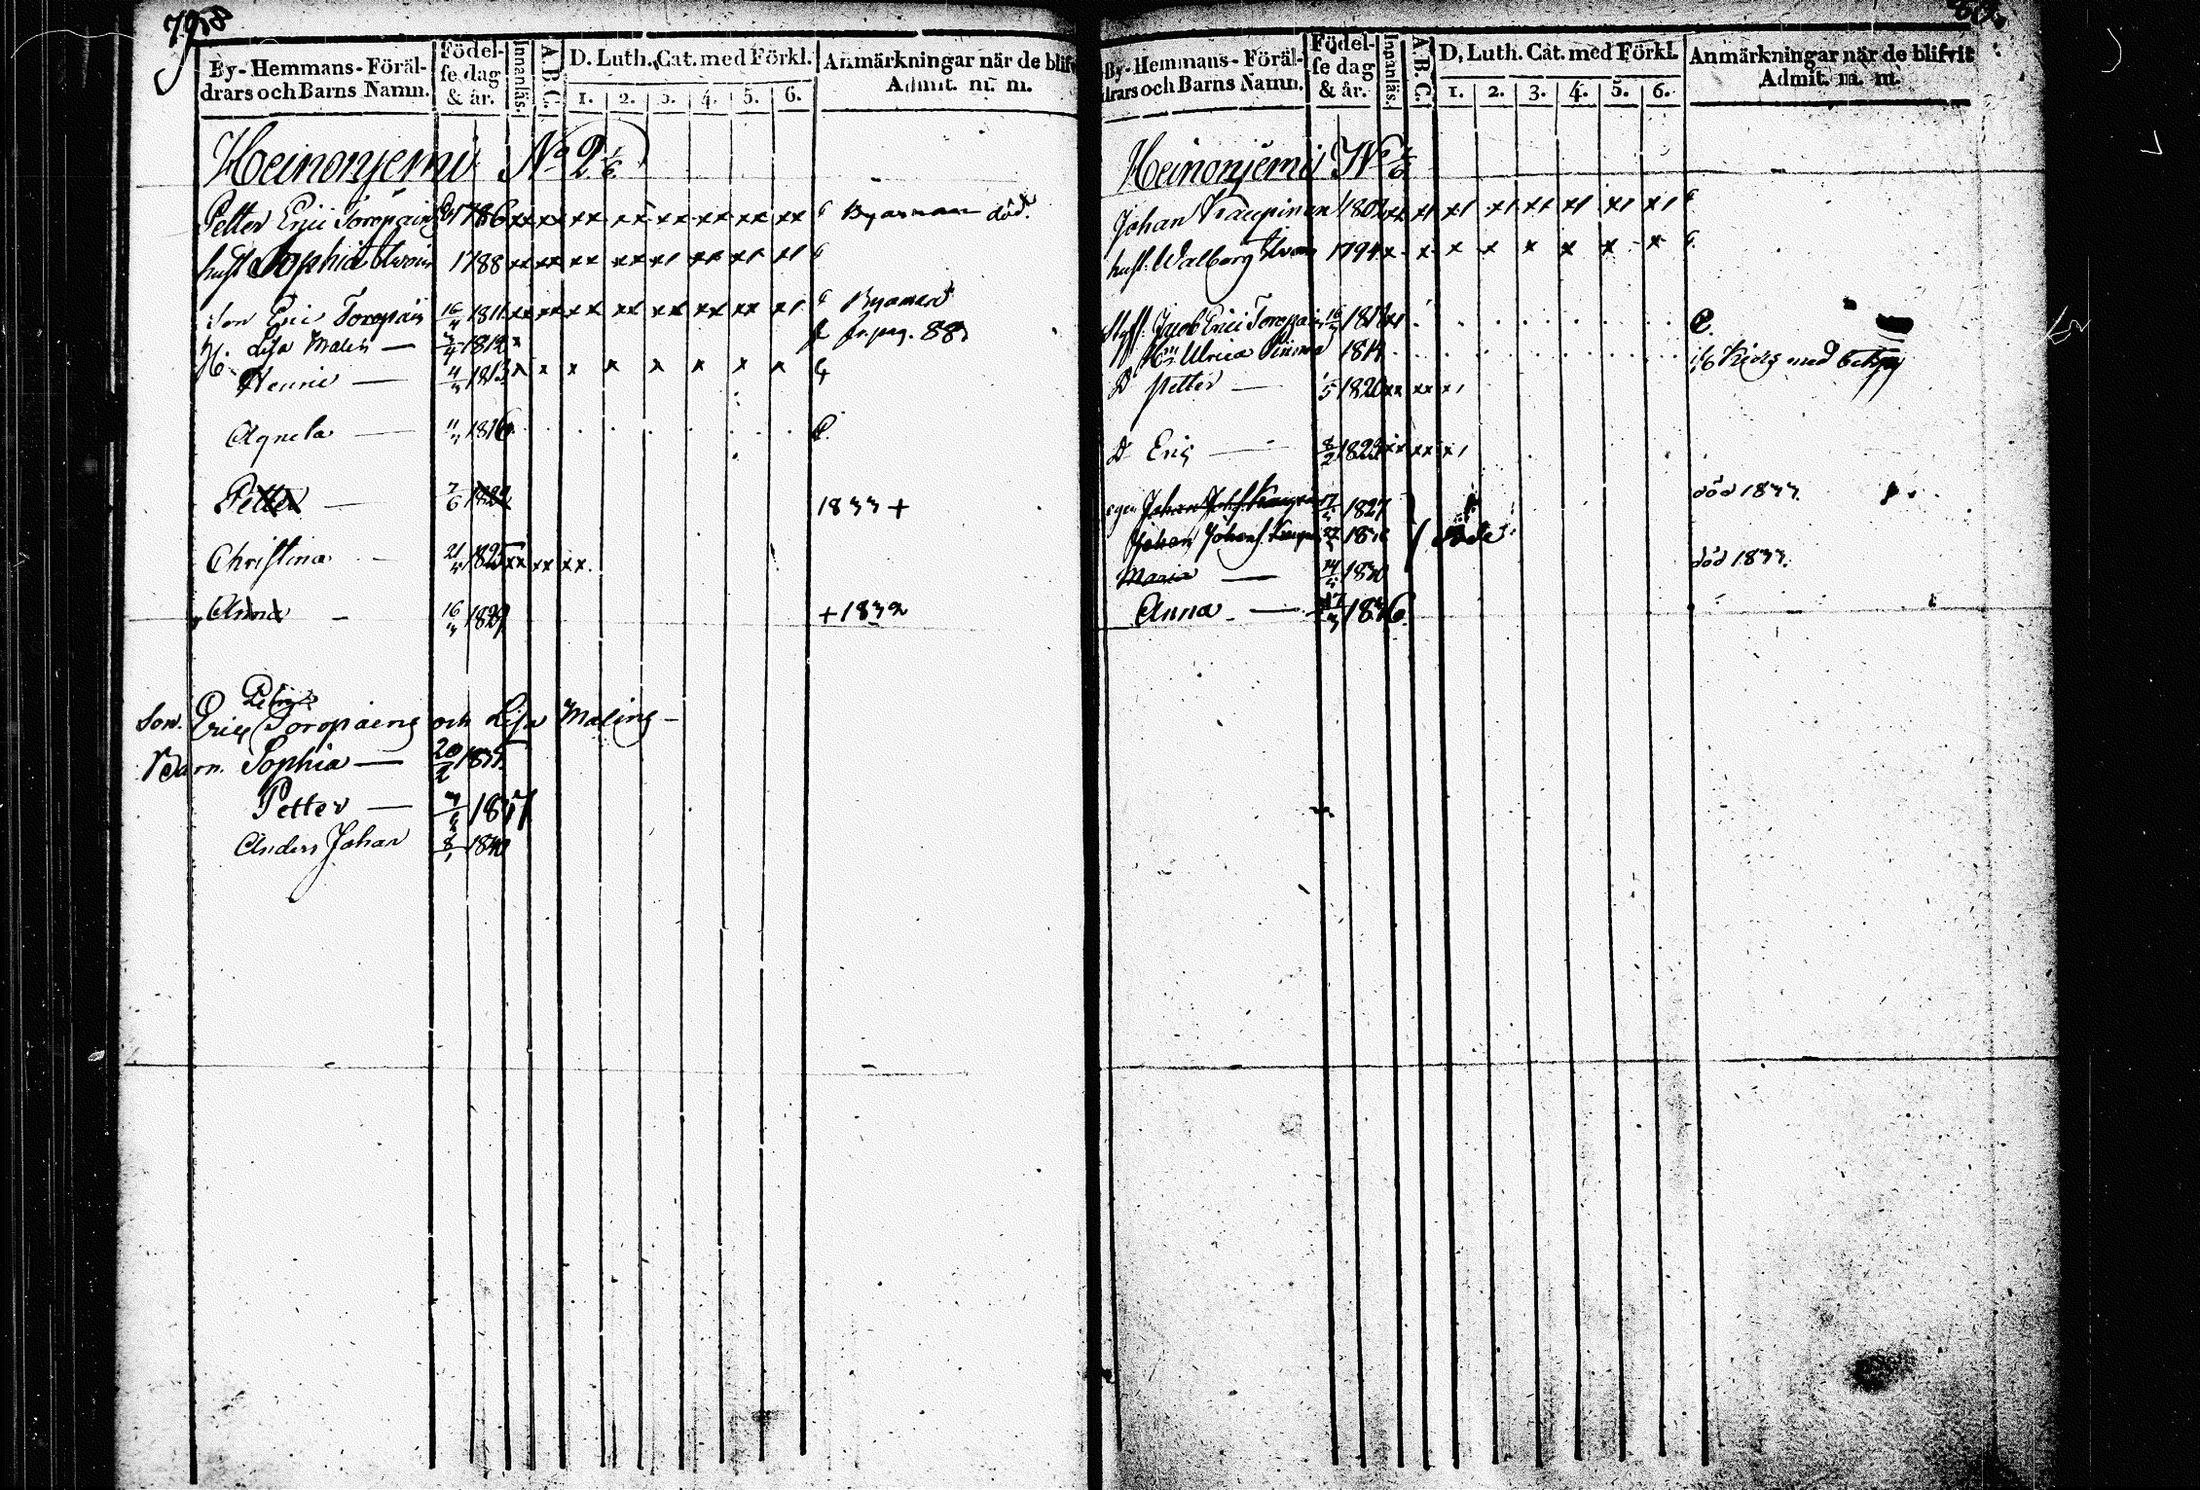 79
By-Hemmans-Föräl-
drars och Barns Namn.
Födel-
se dag
& år.
Innanläs.
A. B. C.
D. Luth. Cat. med Förkl.
1. 2. 3. 4. 5. 6.
Anmärkningar när de blifv
Admit. m. m.
Heinonjemi No 2 1/6
Petter Eric Toropain 1786 xx xx xx xx xx xx xx xx död.
hust Sophia 1788 xx xx xx xx x1 xx x1 x1
Son Eric Toropain 16/4 1811 xx xx xx xx xx xx xx x1
H. Lisa Malin — 1812 x fr. pag. 88
Henric — 4/3 1813 x x x x x x x x
Agneta — 1816
Petter — 7/6 1822 1833 +
Christina — 1825 xx xx xx.
Anna — 1829 + 1832
Petters
Son. Eric Toropaing och Lisa Maling —
Barn. Sophia — 20/2 1835
Petter — 1837
Anders Johan 8/1 1840
80.
By-Hemmans-Föräl-
drars och Barns Namn.
Födel-
se dag
& år.
Innanläs.
A. B. C.
D. Luth. Cat. med Förkl.
1. 2. 3. 4. 5. 6.
Anmärkningar när de blifvit
Admit. m. m.
Heinonjemi No 1/6
Johan Kaupinen 1802 xx x1 x1 x1 x1 x1 x1 x1
hust. Walborg 1794 x x x x x x x x
Styff. Jacob Eric Toropain 1818
Hu Ulrica 1814 med betyg
D Petter — 1820 xx xx x1
D Eric — 8/2 1823 xx xx x1
egen Johan Joh. Kaupin 1827 död 1833
Johan Johans. Kaupin döde
Maria — 1830 död 1833.
Anna — 17/3 1836.